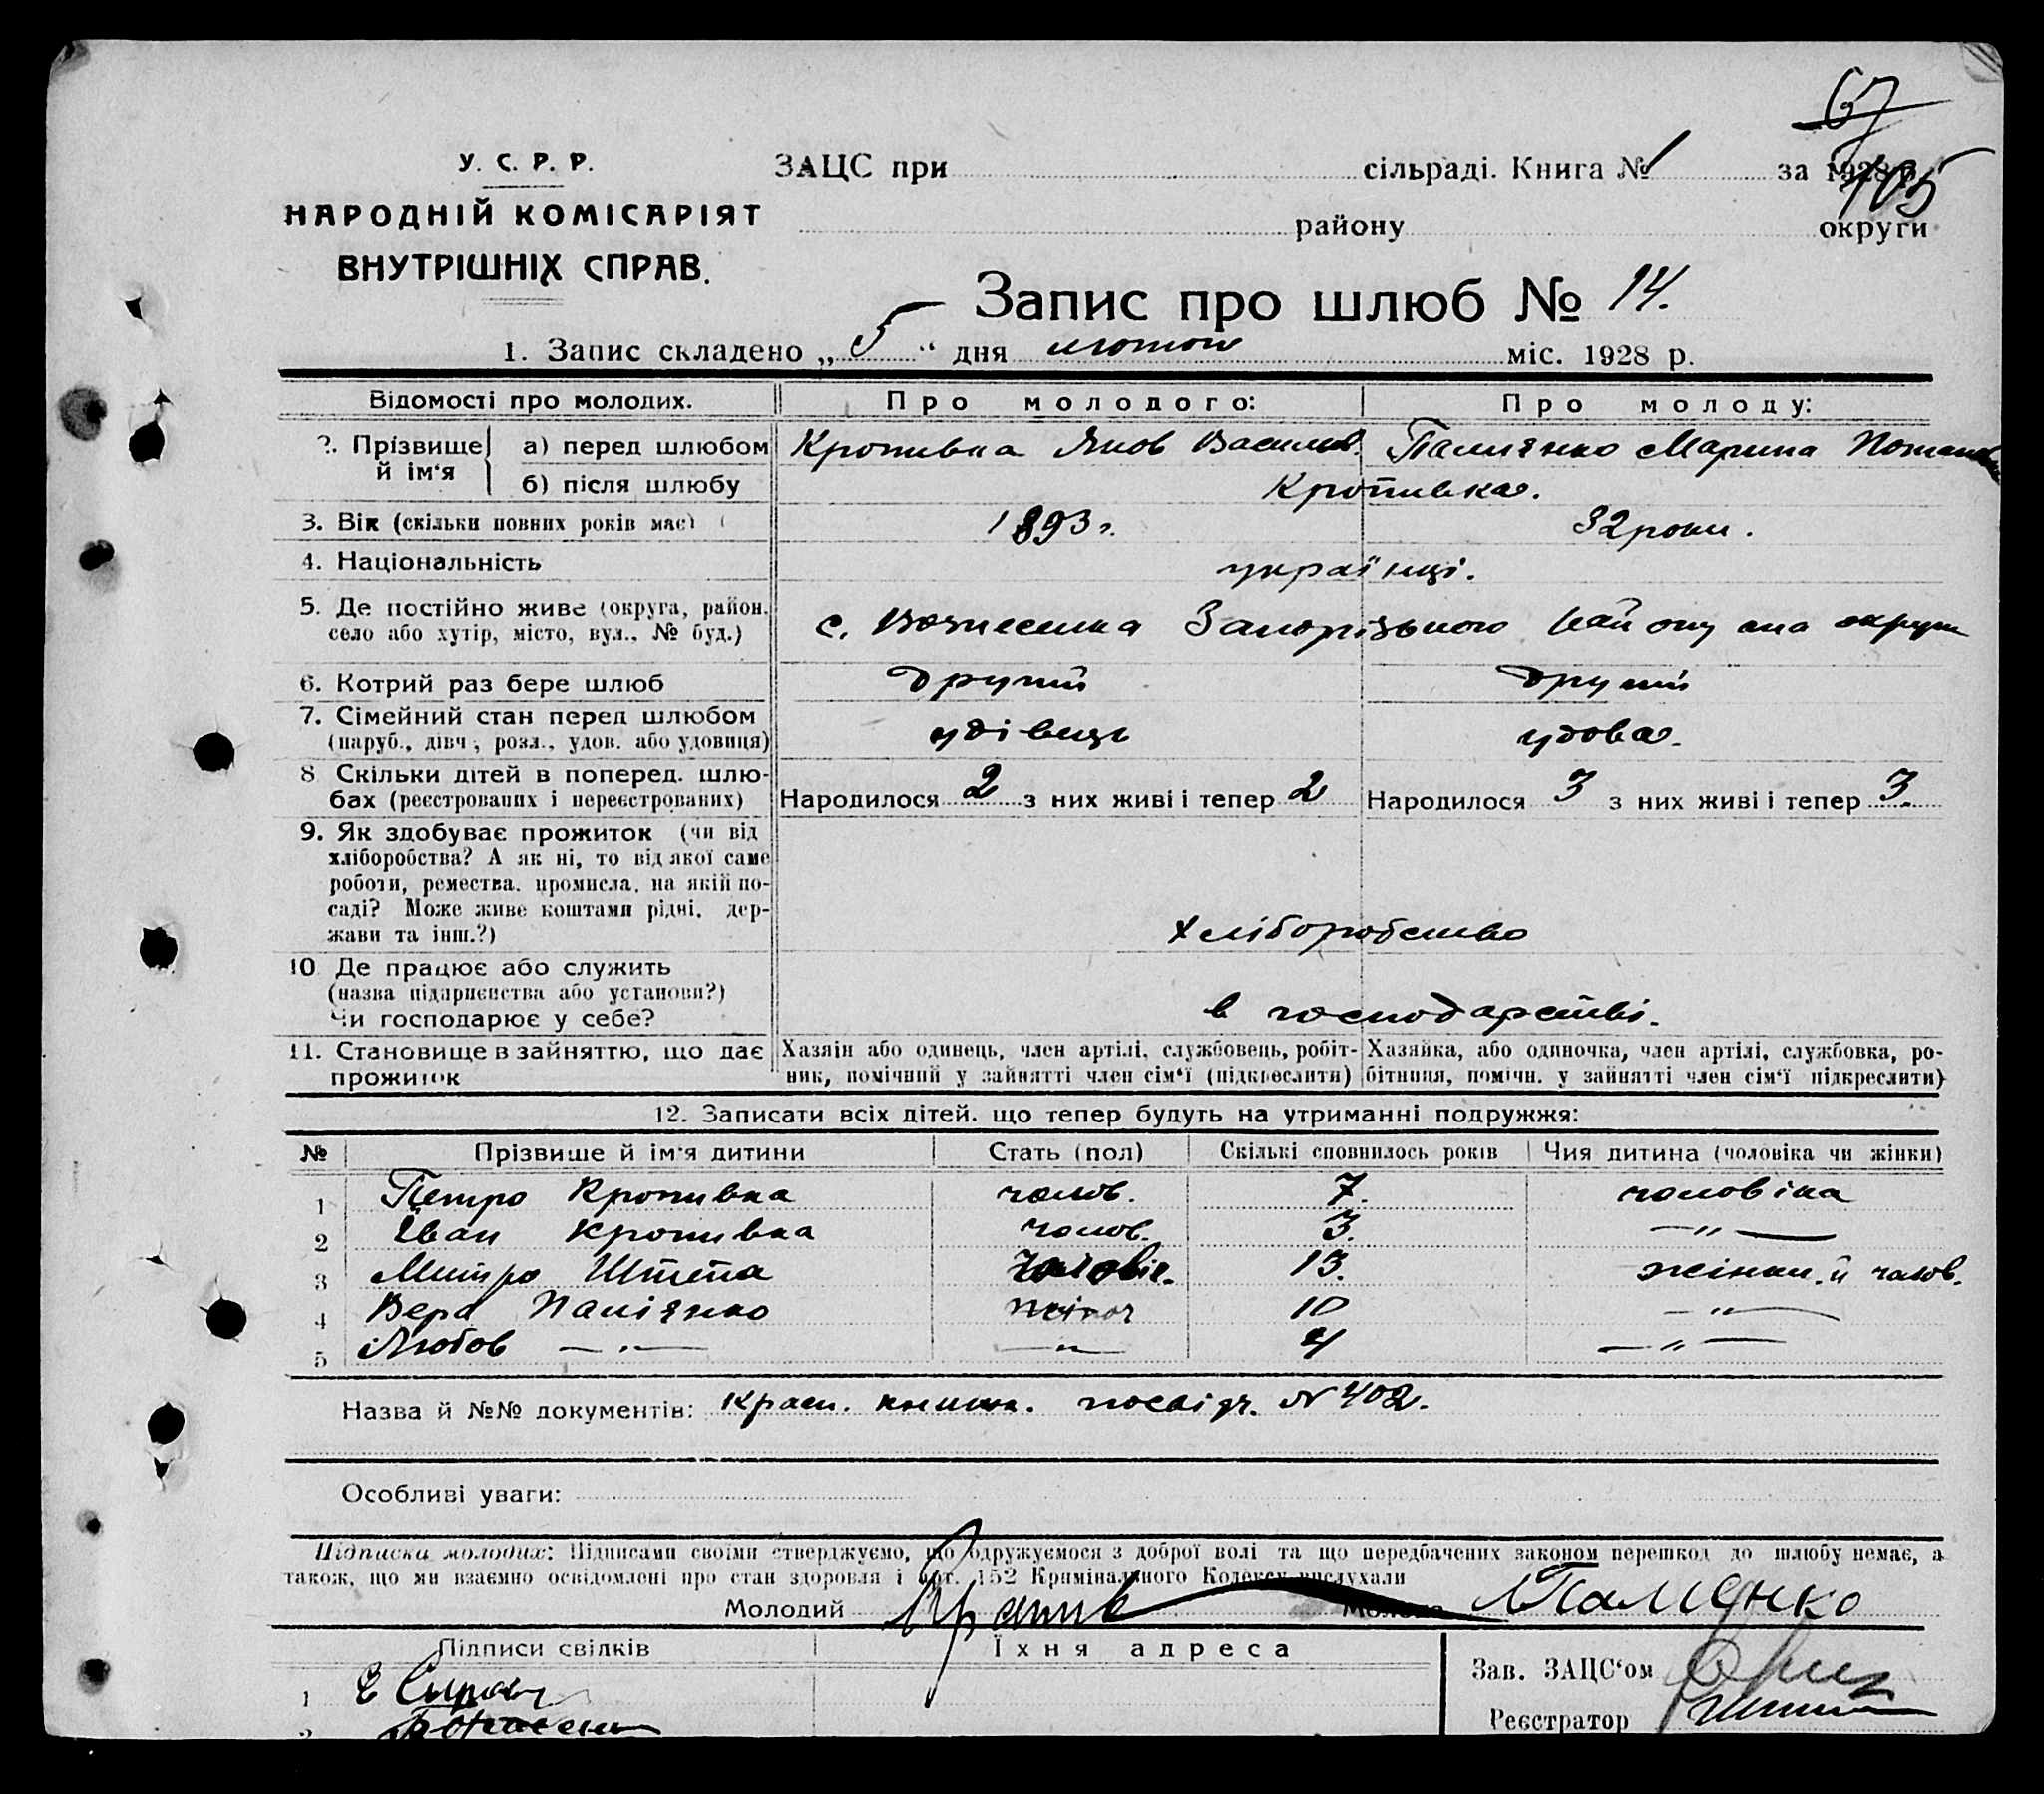 67
105
У. С. Р. Р.
НАРОДНІЙ КОМІСАРІЯТ
ВНУТРІШНІХ СПРАВ.
ЗАЦС при сільраді. Книга № 1 за 1928 р.
району округи
Запис про шлюб № 14.
1. Запис складено „ 5 “ дня лютого міс. 1928 р.
Відомості про молодих. Про молодого: Про молоду:
2. Прізвище й ім‘я а) перед шлюбом Кропивка Яков Василів. Паліянко Марина
б) після шлюбу Кропивка.
3. Вік (скільки повних років має) 1893 г. 32 роки.
4. Національність українці.
5. Де постійно живе (округа, район, село або хутір, місто, вул., № буд.) с. Вознесенка Запорізького району она округи
6. Котрий раз бере шлюб другий другий
7. Сімейний стан перед шлюбом (паруб., дівч., розл., удов. або удовиця) удівець удова.
8 Скільки дітей в поперед. шлю-
бах (реєстрованих і нереєстрованих) Народилося 2 з них живі і тепер 2 Народилося 3 з них живі і тепер 3.
9. Як здобуває прожиток (чи від
хліборобства? А як ні, то від якої саме
роботи, ремества, промисла, на якій по-
саді? Може живе коштами рідні, дер-
жави та інш.?) хліборобство
10 Де працює або служить
(назва підприємства або установи?)
Чи господарює у себе? в господарстві.
11. Становище в зайняттю, що дає прожиток
Хазяїн або одинець, член артілі, службовець, робіт-
ник, помічний у зайнятті член сім‘ї (підкреслити)
Хазяйка, або одиночка, член артілі, службовка, ро-
бітниця, помічн. у зайнятті член сім‘ї підкреслити)
12. Записати всіх дітей. що тепер будуть на утриманні подружжя:
№ Прізвище й ім‘я дитини Стать (пол) Скількі сповнилось років Чия дитина (чоловіка чи жінки)
1 Петро Кропивка чолов. 7. чоловіка
2 Іван Кропивка чолов. 3. — „ —
3 Митро Штепа чоловіч. 13. жінки. й чолов.
4 Вера Паліянко жіноч 10 — „ —
5 Любов — „ — — „ — 4 — „ —
Назва й №№ документів: Красн. книжк. посвідч. № 402.
Особливі уваги:
Підписка молодих: Підписами своїми стверджуємо, що одружуємося з доброї волі та що передбачених законом перешкод до шлюбу немає, а
також, що ми взаємно освідомлені про стан здоровля і арт. 152 Кримінального Кодексу вислухали
Молодий Молода Паліянко
Підписи свідків Їхня адреса
Зав. ЗАЦС‘ом
1
Реєстратор
2